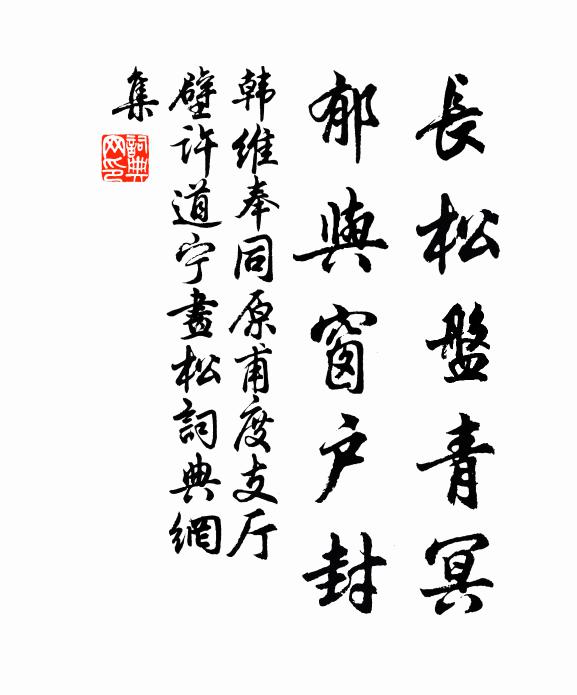 長松盤青冥
郁與窗户封
韩維奉同原甫度支厅
壁许道宁畫松詞典網
集
詞典
网印